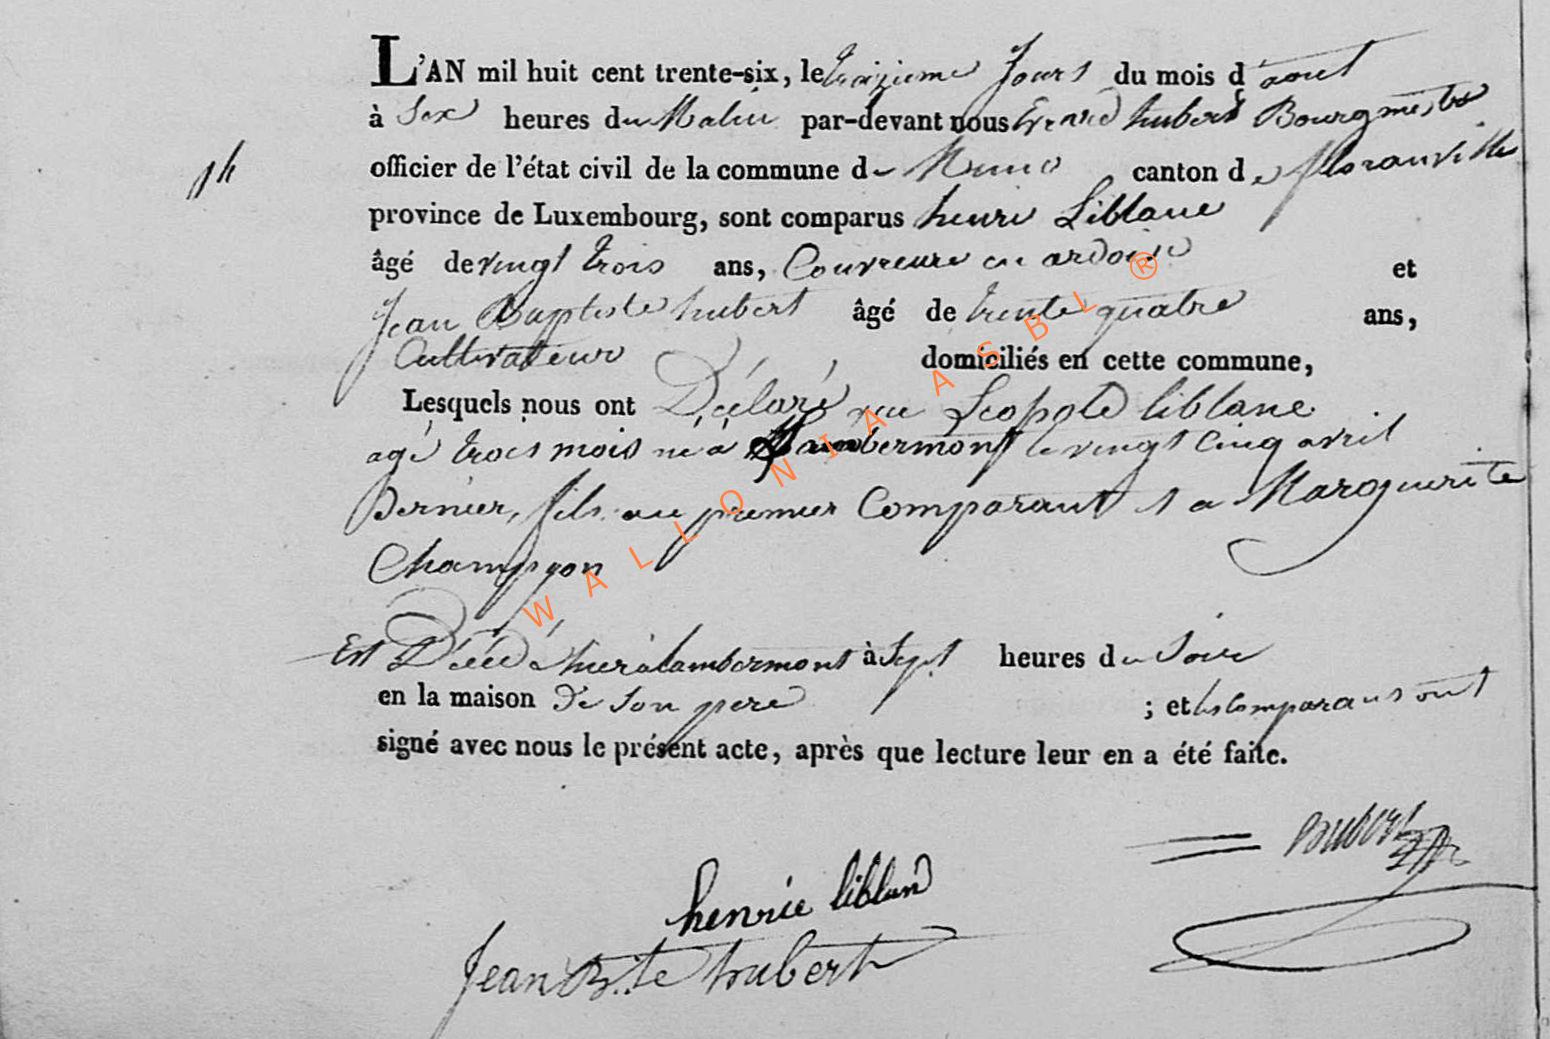 L'AN mil huit cent trente-six, le treizieme Jours du mois d'aout
à Six heures du Matin par-devant nous hubert Bourgmestre
14
officier de l'état civil de la commune de Muno canton de floranville
province de Luxembourg, sont comparus henri Liblanc
âgé de vingt trois ans, Couvreure en ardoise et
Jean Baptiste hubert âgé de trente quatre ans,
Cultivateur domiciliés en cette commune,
Lesquels nous ont Déclaré que Leopold liblanc
agé trois mois né a Lambermont le vingt cinq avril
Dernier, fils au premier Comparant et a Marguerite
Champion
Est Décédé hier a lambermont à Sept heures du Soir
en la maison de Son pere ; et les Comparans ont
signé avec nous le présent acte, après que lecture leur en a été faite.
hubert
henrie liblan
Jean Bte hubert
WALLONIA ASBL ®